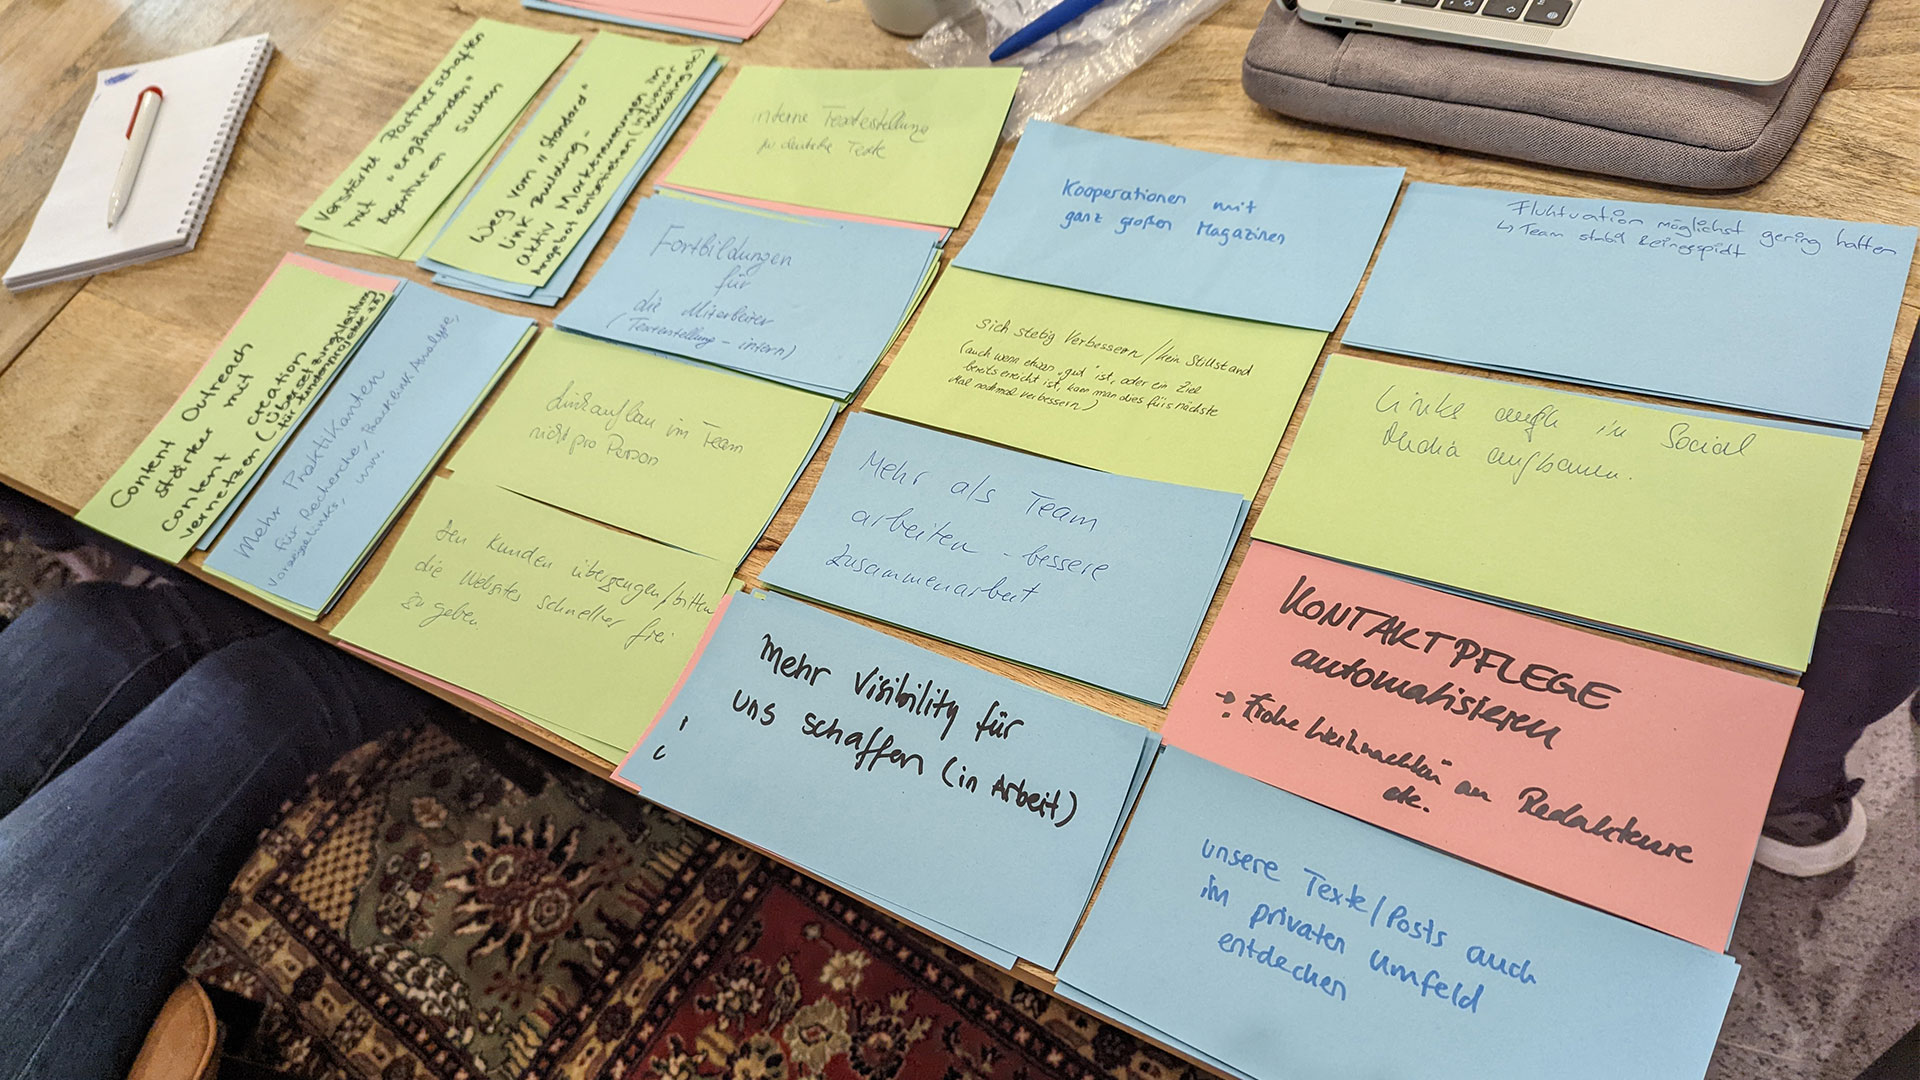 Verstärkt Partnerschaften
mit "ergänzenden"
Agenturen suchen
Weg vom "Standard"
Link Building -
aktiv Markterneuerungen im
Angebot einbeziehen (Influencer
Marketing etc.)
interne Texterstellung
für deutsche Texte
Kooperationen mit
ganz großen Magazinen
Fluktuation möglichst gering halten
↳ Team stabil &
Fortbildungen
für
die Mitarbeiter
(Texterstellung - intern)
sich stetig Verbessern / kein Stillstand
(auch wenn etwas „gut" ist, oder ein Ziel
bereits erreicht ist, kann man dies fürs nächste
Mal nochmal verbessern)
Links auch in Social
Media aufbauen.
Content Outreach
stärker mit
Content creation
vernetzen (Übersetzungsleistung
für Kundenprojekte z.B)
Mehr Praktikanten
für Recherche, Backlink Analyse,
usw.
Linkaufbau im Team
nicht pro Person
Mehr als Team
arbeiten - bessere
Zusammenarbeit
den Kunden überzeugen/bitten
die Websites schneller frei
zu geben
KONTAKTPFLEGE
automatisieren
→ Frohe Weihnachten an Redakteure
etc.
Mehr Visibility für
uns schaffen (in Arbeit)
unsere Texte/Posts auch
im privaten Umfeld
entdecken